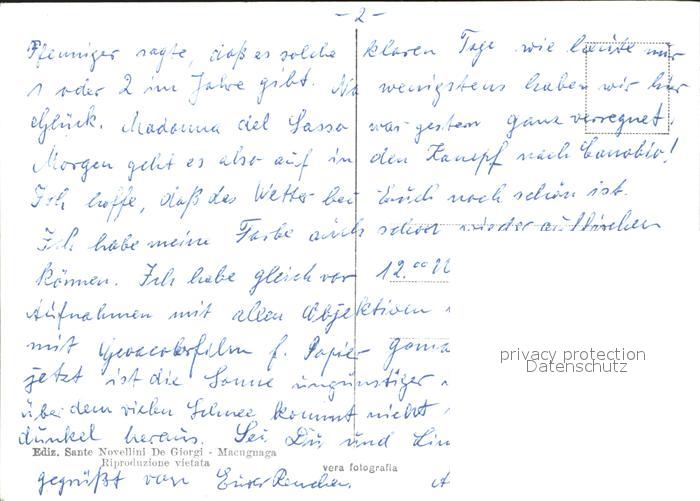 - 2 -
Pfenniger sagte, daß es solche klaren Tage wie heute nur
1 oder 2 im Jahre gibt. Na wenigstens haben wir hier
Glück. Madonna del Sasso war gestern ganz verregnet.
Morgen geht es also auf in den Kampf nach Canobio!
Ich hoffe, daß das Wetter bei Euch noch schön ist.
Ich habe meine Farbe auch schon wieder auffrischen
können. Ich habe gleich vor 12.00
Aufnahmen mit allen Objektiven
mit Gevacolorfilm f. Papier
jetzt ist die Sonne ungünstiger
über dem vielen Schnee kommt nicht
dunkel heraus. Sei Du und
gegrüßt von Eurer
Ediz. Sante Novellini De Giorgi - Macugnaga
Riproduzione vietata
vera fotografia
privacy protection
Datenschutz